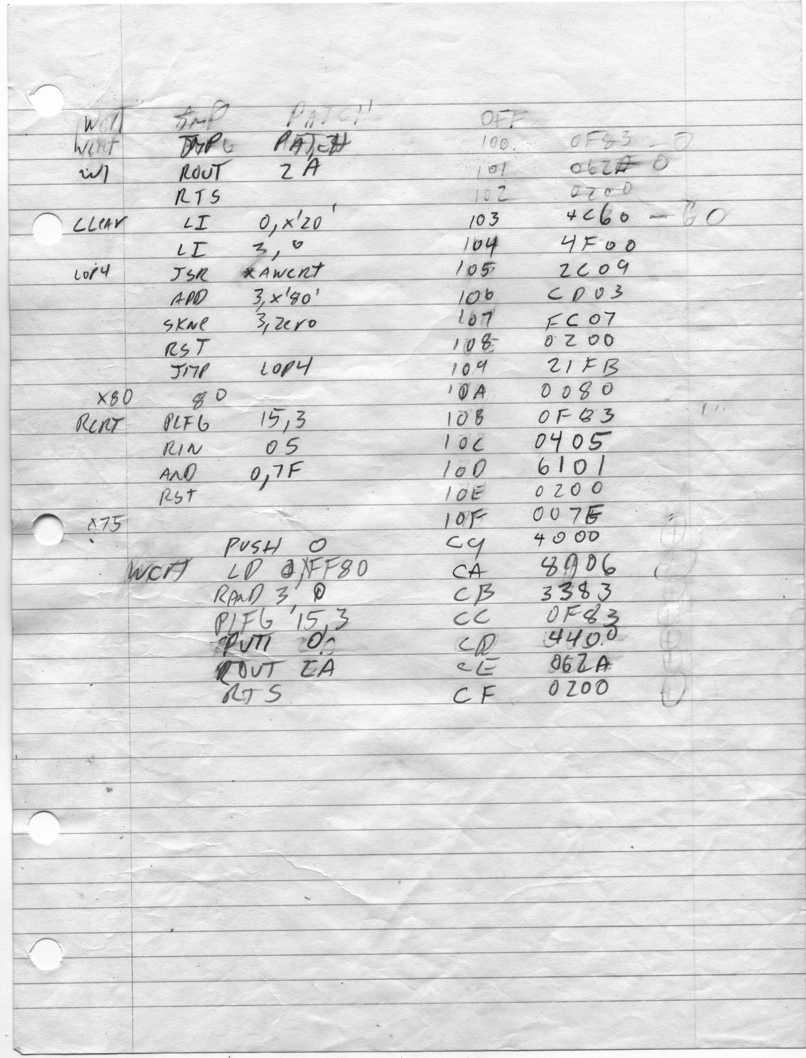 JMP PATCH OFF
WCRT PATCH 100 0F83 - 0
ROUT 2A 101 062A 0
RTS 102 0200
CLEAR LI 0,X'20' 103 4C60 - 60
LI 3,0 104 4F00
LOP4 JSR *AWCRT 105 2C09
ADD 3,X'80' 106 CD03
SKNE 3,Zero 107 FC07
RST 108 0200
JMP LOP4 109 21FB
X80 80 10A 0080
RCRT PLFG 15,3 10B 0F83
RIN 05 10C 0405
AND 0,7F 10D 6101
RST 10E 0200
X75 10F 007E
PUSH 0 C9 4000
WCRT LD 0,FF80 CA 8906
RAND 3,0 CB 3383
PLFG 15,3 CC 0F83
PULL 0 CD 4400
ROUT 2A CE 062A
RTS CF 0200